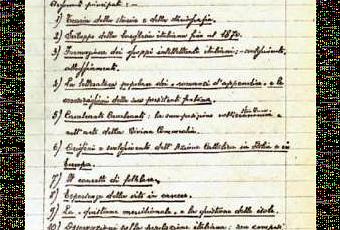 Argomenti principali: —
1) Teoria della storia e della storiografia.
2) Sviluppo della borghesia italiana fino al 1870.
3) Formazione dei gruppi intellettuali italiani: — svolgimento,
atteggiamenti.
4) La letteratura popolare dei "romanzi d'appendice" e le
ragioni della sua persistente fortuna.
5) Cavalcante Cavalcanti: la sua posizione nella struttura e
nell'arte della Divina Commedia.
6) Origini e svolgimento dell'Azione Cattolica in Italia e in
Europa.
7) Il concetto di folklore.
8) Esperienze della vita in carcere.
9) La "quistione meridionale" e la quistione delle isole.
10) Osservazioni sulla popolazione italiana: sua composi-